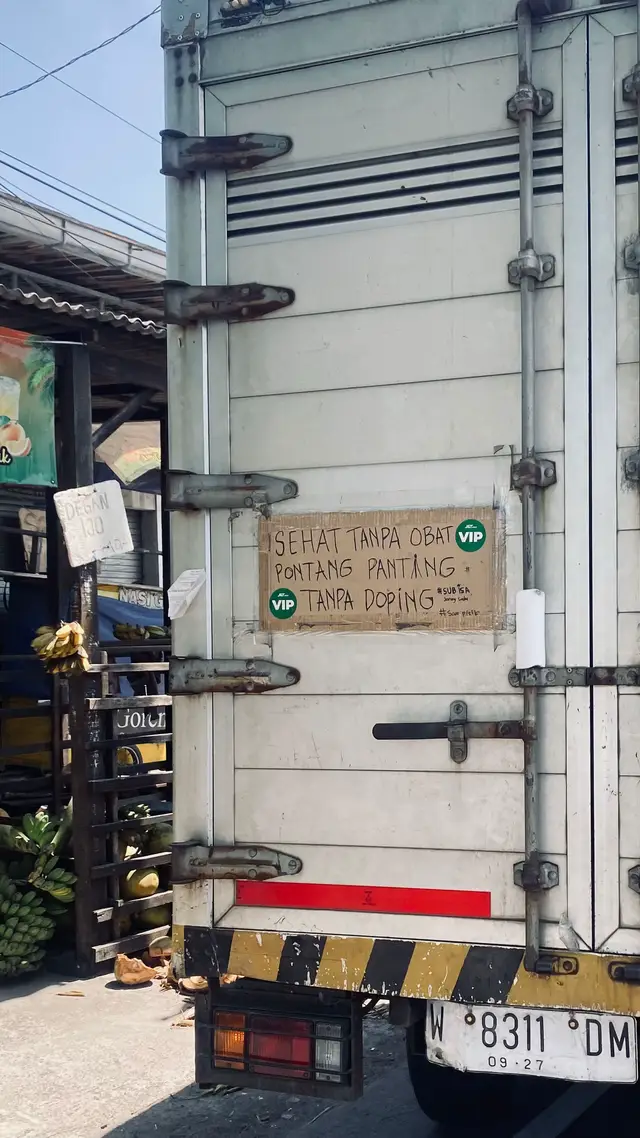 SEHAT TANPA OBAT
VIP
PONTANG PANTING
VIP
TANPA DOPING
#SUBISA
DEGAN
IJO
NASI G
Goren
W 8311 DM
09-27